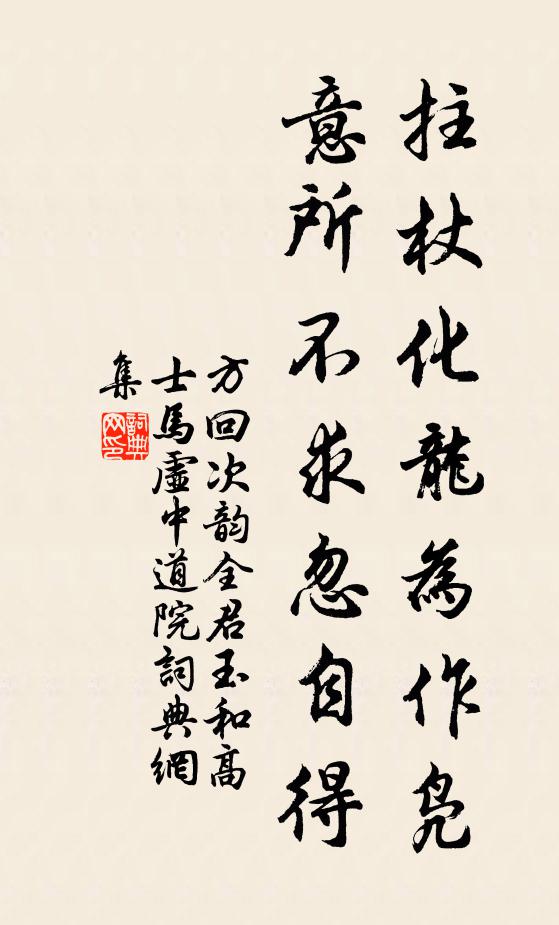 拄杖化龍為作鳧
意所不求忽自得
方回次韵全君玉和高
士馬虛中道院詞典網
集
詞典
网印